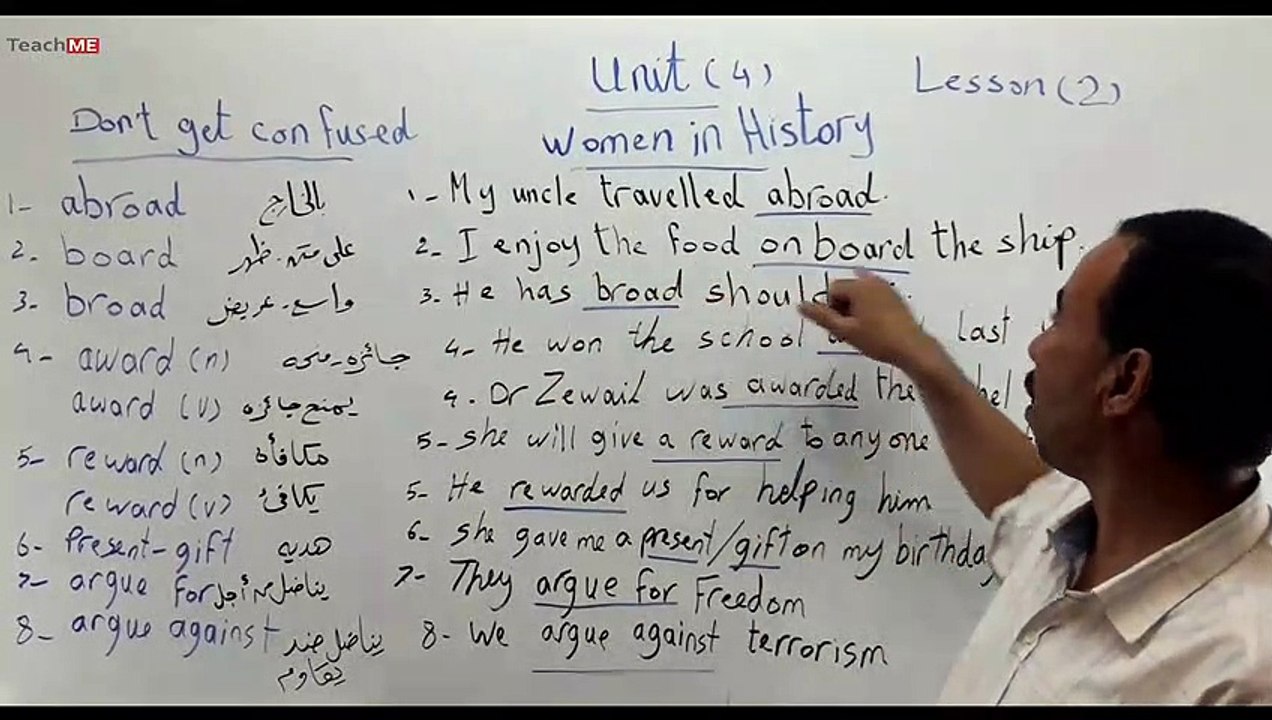 TeachME
Unit (4)
Lesson (2)
Don't get confused
Women in History
1- abroad بالخارج
2. board على متن - ظهر
3- broad واسع - عريض
4- award (n) جائزه - منحه
award (v) يمنح جائزه
5- reward (n) مكافأة
reward (v) يكافئ
6- Present-gift هديه
7- argue For يناضل من أجل
8- argue against يناضل ضد
يقاوم
1- My uncle travelled abroad.
2- I enjoy the food on board the ship.
3. He has broad
4- He won the school last
4. Dr Zewail was awarded the
5- she will give a reward to any one
5- He rewarded us for helping him
6- she gave me a present/gift on my birthday
7- They argue for Freedom
8- We argue against terrorism